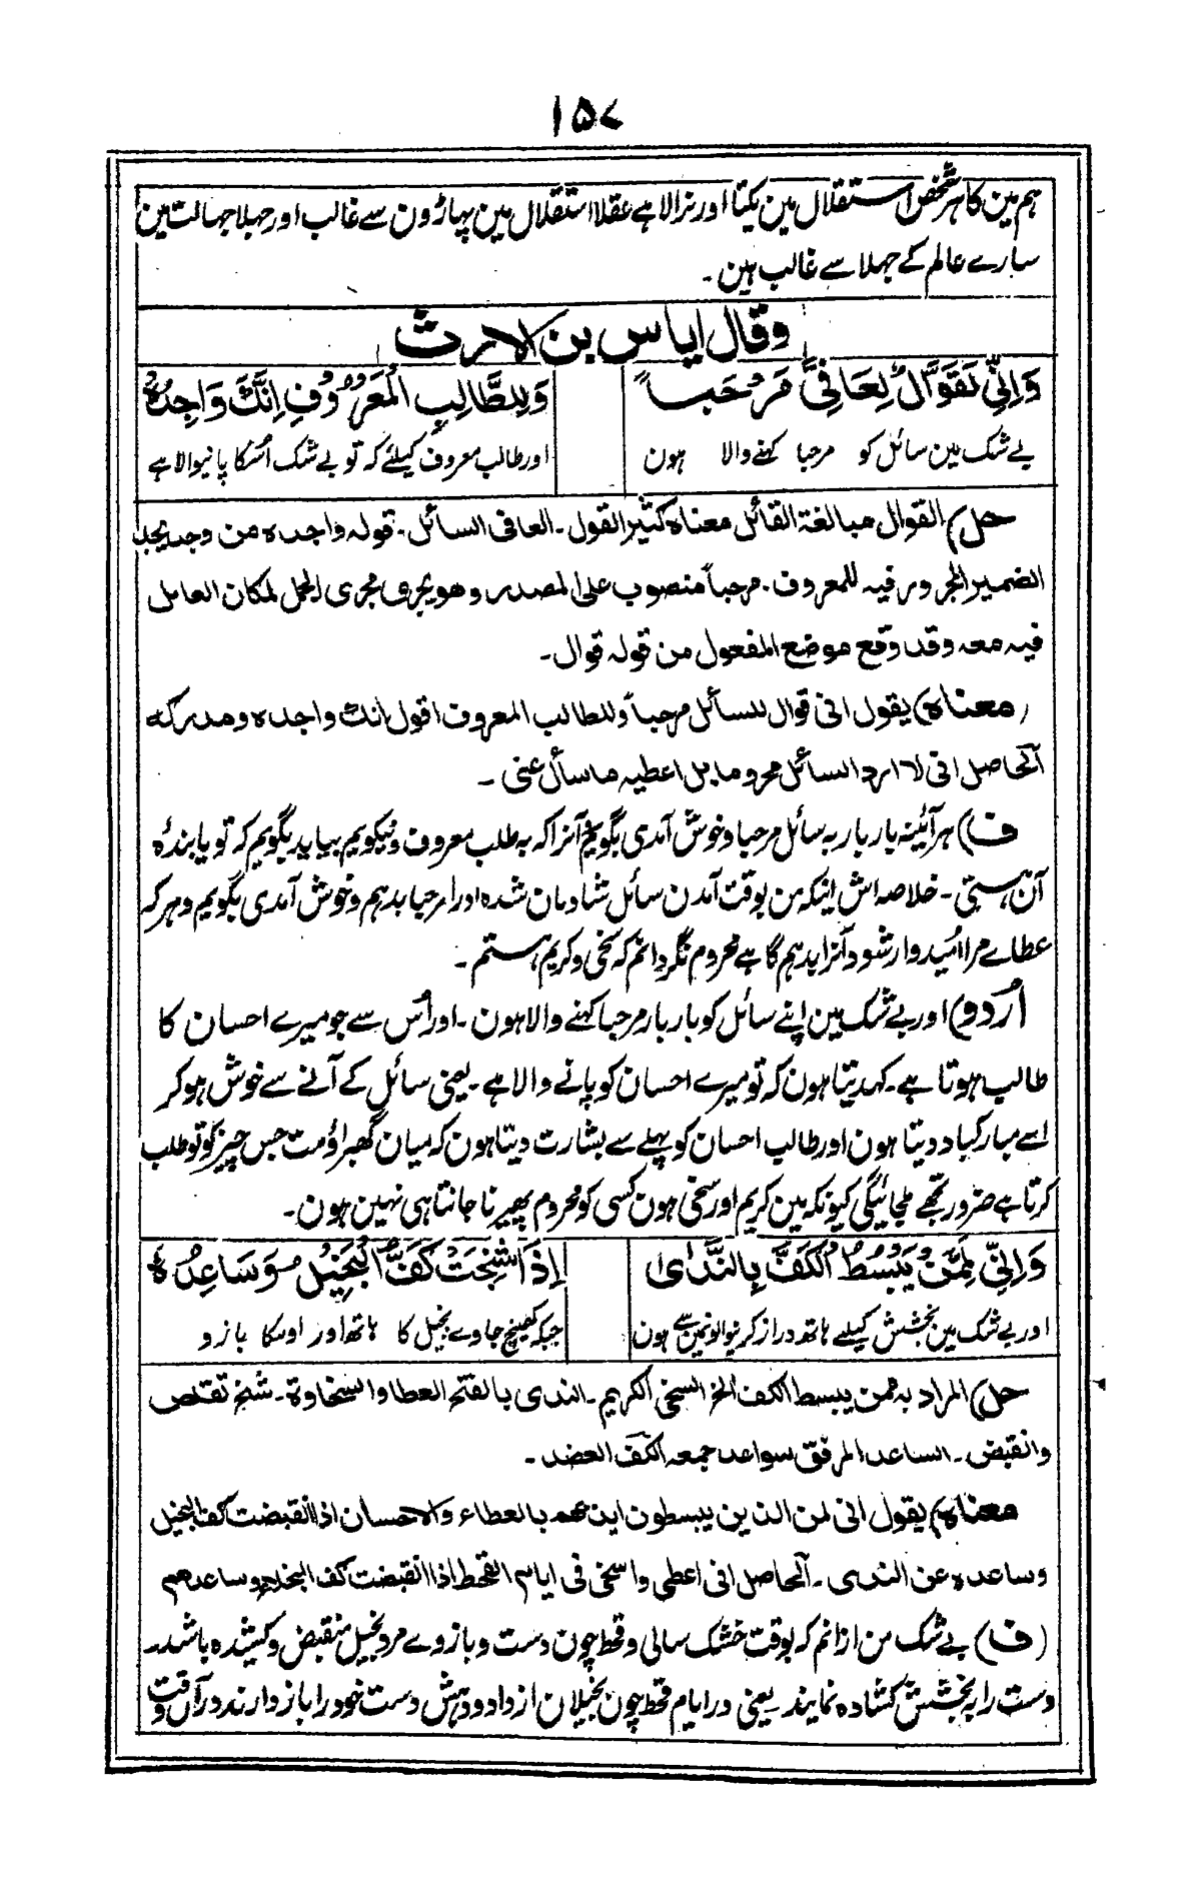 ۱۵۷
ہم مین کا ہر شخص استقلال مین یکتا اور نرالا ہے عقلا استقلال مین پہاڑون سے غالب اور جہلا جہالت مین
سارے عالم کے جہلا سے غالب ہین۔
وقال ایاس بن الارث
وَاِنِّیْ لَقَوَّالٌ لِعَافِیَّ مَرْحَباً وَلِلطَّالِبِ الْمَعْرُوْفِ اِنَّكَ وَاجِدُهْ
بے شک مین سائل کو مرحبا کہنے والا ہون اور طالب معروف کیلئے کہ تو بے شک اُسکا پانیوالا ہے
حل) القوال مبالغة القائل معناه کثیر القول۔ العافی السائل۔ قوله واجده من وجد یجد
الضمیر المجرور فیه للمعروف۔ مرحباً منصوب علی المصدر وهو یجری مجری الجمل لمکان العامل
فیه معه وقد وقع موضع المفعول من قوله قوال۔
(معناه) یقول انی قوال للسائل مرحباً وللطالب المعروف اقول انك واجده ومدرکه
الحاصل انی لا ارد السائل محروما بل اعطیه ما سأل عنی ۔
ف) ہر آئینہ بار بار بہ سائل مرحبا و خوش آمدی بگویم آنرا کہ بہ طلب معروف و نیکویم بیاید بگویم کہ تو یابندۂ
آن ہستی۔ خلاصہ اش اینکہ من بوقت آمدن سائل شادمان شدہ اورا مرحبا بدہم و خوش آمدی بگویم و ہر کہ
عطاے مرا اُمیدوار شود آنرا بدہم گاہے محروم نگردانم کہ سخی و کریم ہستم ۔
اُردو) اور بے شک مین اپنے سائل کو بار بار مرحبا کہنے والا ہون۔ اور اُس سے جو میرے احسان کا
طالب ہوتا ہے۔ کہدیتا ہون کہ تو میرے احسان کو پانے والا ہے۔ یعنی سائل کے آنے سے خوش ہو کر
اسے مبارکباد دیتا ہون اور طالب احسان کو پہلے سے بشارت دیتا ہون کہ میان گھبراؤ مت جس چیز کو تو طلب
کرتا ہے ضرور تجھے ملجائیگی کیونکہ مین کریم اور سخی ہون کسی کو محروم پھیرنا جانتا ہی نہین ہون۔
وَاِنِّیْ لَمِمَّنْ یَبْسُطُ الْكَفَّ بِالنَّدٰی اِذَا شَنِجَتْ كَفُّ الْبَخِیْلِ وَسَاعِدُهْ
اور بے شک مین بخشش کیلئے ہاتھ دراز کرنیوالونمین سے ہون جبکہ کھینچ جاوے بخیل کا ہاتھ اور اوسکا بازو
حل) المراد به ممن یبسط الکف الخ السخی الکریم۔ الندی بالفتح العطا والسخاوة۔ شنج تقلص
وانقبض۔ الساعد المرفق سواعد جمعه الکف العضد۔
معناه) یقول انی لمن الذین یبسطون ایدیهم بالعطاء والاحسان اذا انقبضت کف البخیل
وساعده عن الندی۔ الحاصل انی اعطی واسخی فی ایام القحط اذا انقبضت کف البخلاء وساعدهم
(ف) بے شک من ازانم کہ بوقت خشک سالی و قحط چون دست و بازوے مرد بخیل منقبض و کشیدہ باشد
دست را بہ بخشش کشادہ نمایند یعنی در ایام قحط چون بخیلان از داد و دہش دست خود را باز دارند در آن وقت